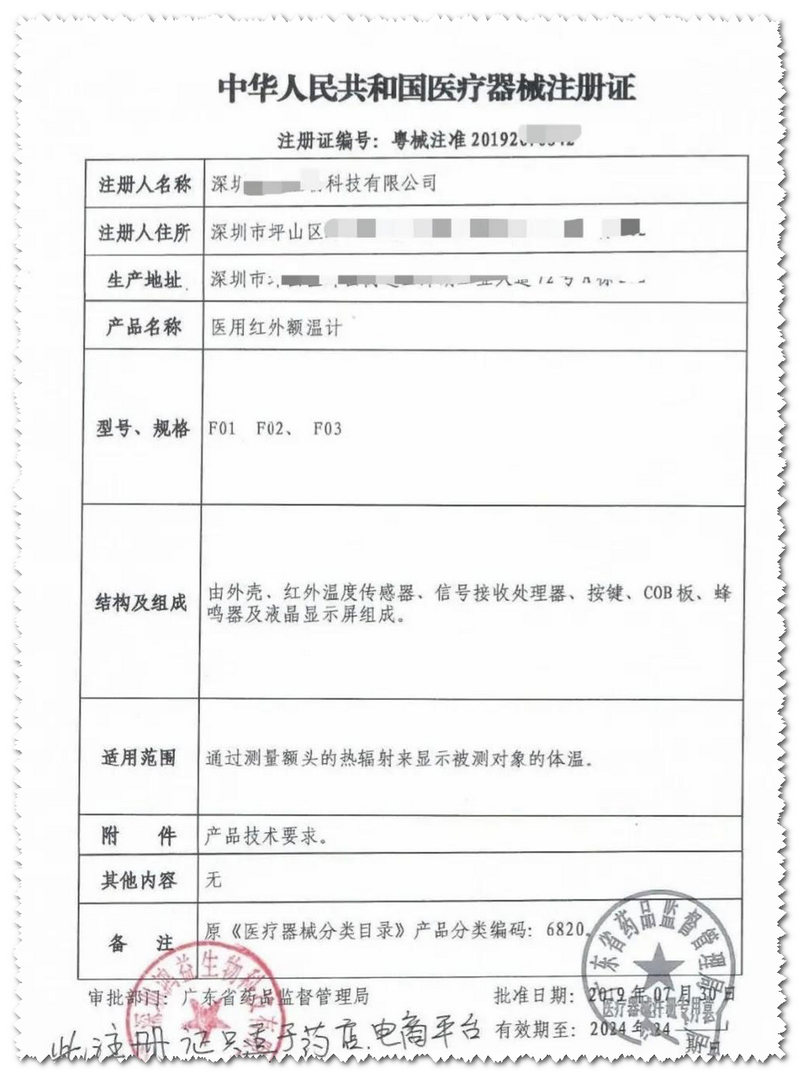 中华人民共和国医疗器械注册证
注册证编号：粤械注准 20192
注册人名称 深圳 科技有限公司
注册人住所 深圳市坪山区
生产地址 深圳市
产品名称 医用红外额温计
型号、规格 F01 F02、 F03
结构及组成 由外壳、红外温度传感器、信号接收处理器、按键、COB板、蜂
鸣器及液晶显示屏组成。
适用范围 通过测量额头的热辐射来显示被测对象的体温。
附 件 产品技术要求。
其他内容 无
备 注 原《医疗器械分类目录》产品分类编码：6820。
审批部门：广东省药品监督管理局 批准日期：2019年07月30日
有效期至：2024年
广东省药品监督管理局
医疗器械注册专用章
此注册证只盖于药店、电商平台